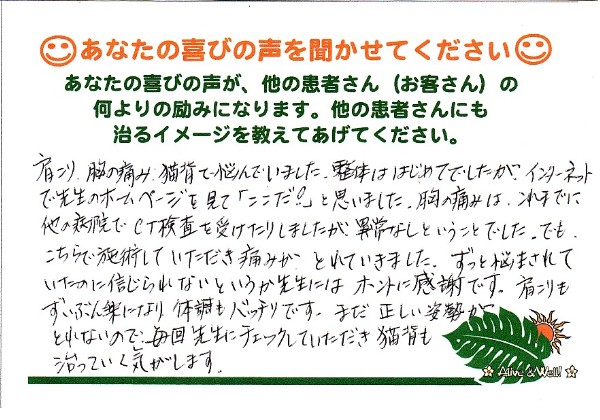 あなたの喜びの声を聞かせてください
あなたの喜びの声が、他の患者さん（お客さん）の
何よりの励みになります。他の患者さんにも
治るイメージを教えてあげてください。
肩こり、胸の痛み、猫背で悩んでいました。整体ははじめてでしたが、インターネット
で先生のホームページを見て「ここだ!!」と思いました。胸の痛みは、これまでに
他の病院でCT検査を受けたりしましたが、異常なしということでした。でも、
こちらで施術していただき痛みが とれていきました。ずっと悩まされて
いたのに信じられないというか先生には ホントに感謝です。肩こりも
ずいぶん楽になり 体調もバッチリです。まだ 正しい姿勢が
とれないので、毎回 先生にチェックしていただき 猫背も
治っていく気がします。
Alive & Well!